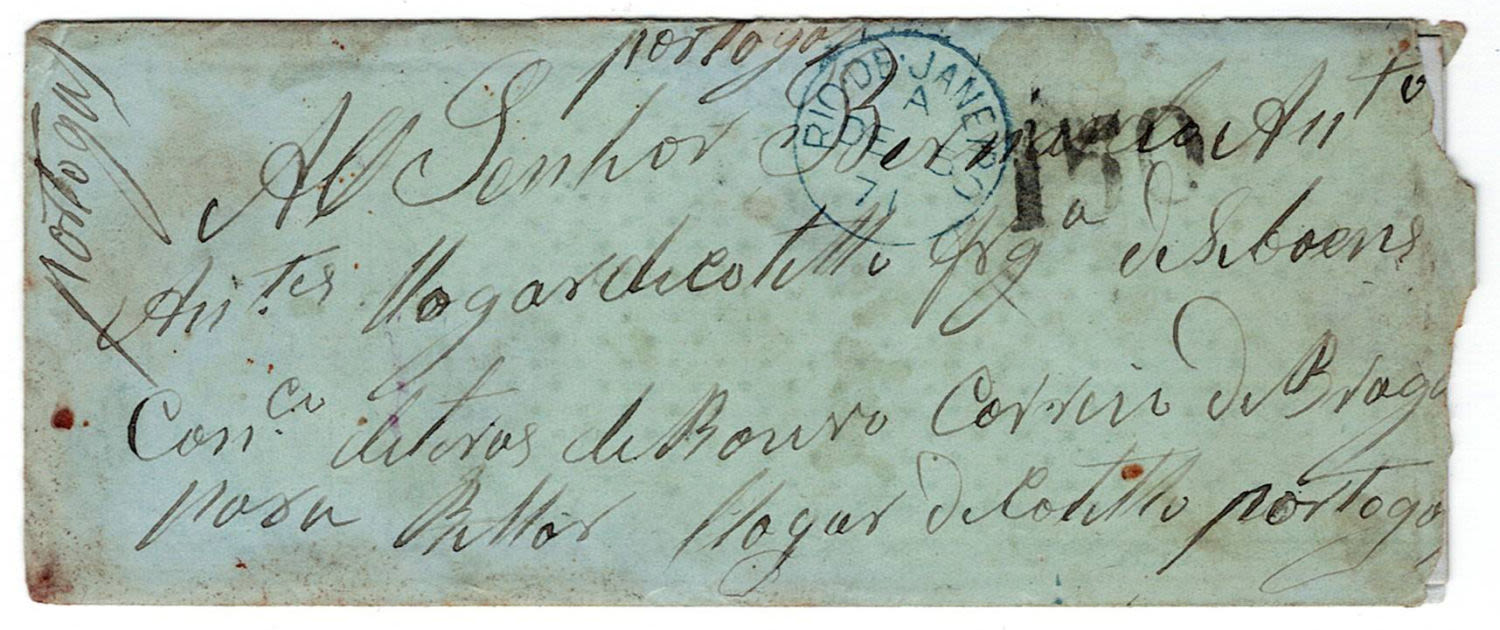 portogal
portogal
RIO DE JANEIRO
A
DE
71
150
Al Senhor Bernardo Ant.to
An.tes llogar de cotello frg.a de
Con.co de teras de Bouro Correio de Braga
para llogar de Cotello portogal